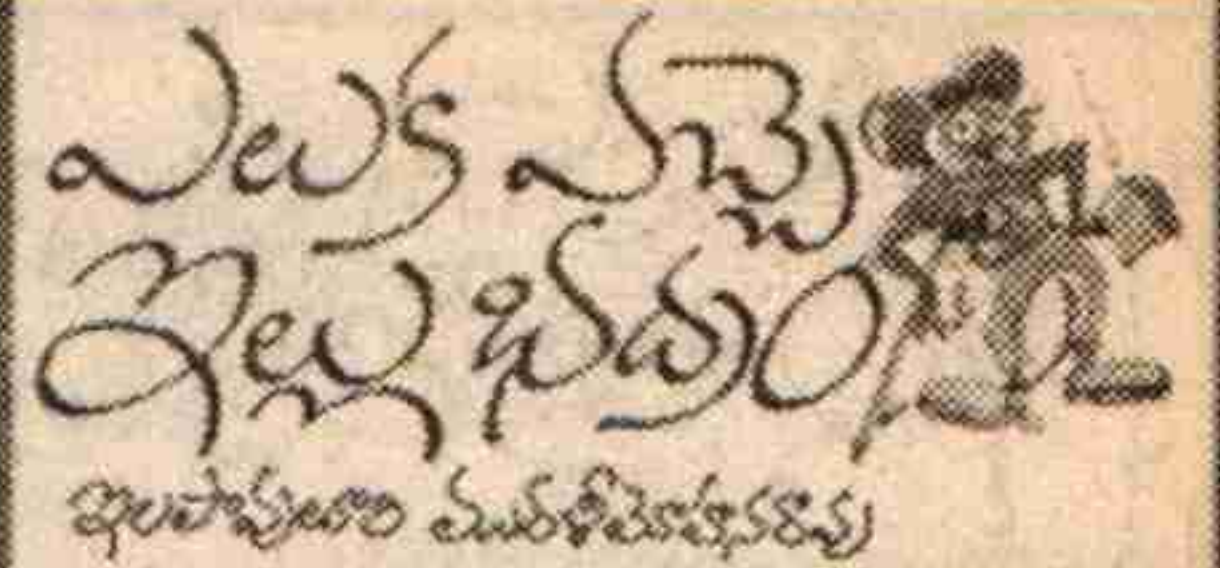 ఎలుక వచ్చె
ఇల్లు భద్రం
ఇలపావులూరి మురళీమోహనరావు